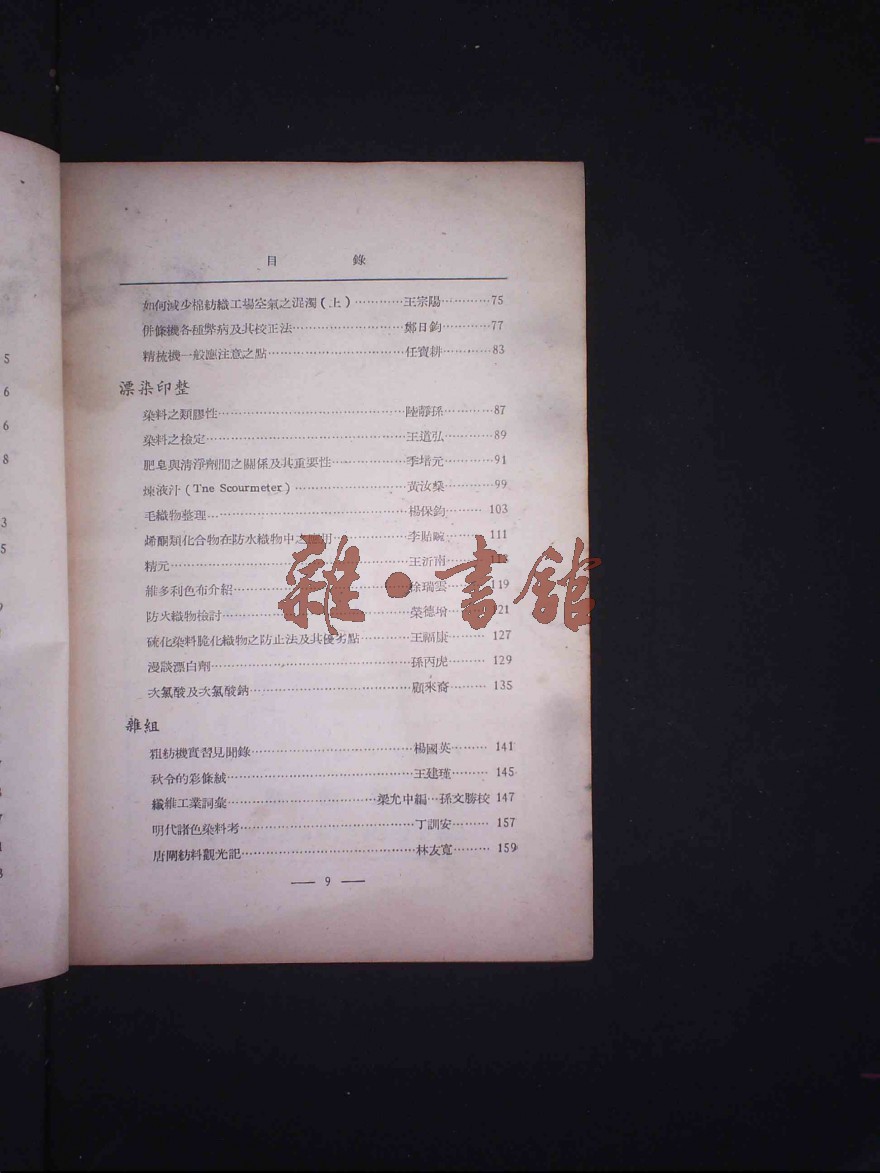 目錄
如何減少棉紡織工場空氣之混濁(上)…………王宗陽…………75
併條機各種弊病及其校正法…………鄭日鈞…………77
精梳機一般應注意之點…………任寶耕…………83
漂染印整
染料之類膠性…………陸靜孫…………87
染料之檢定…………王道弘…………89
肥皂與清淨劑間之關係及其重要性…………季培元…………91
煉液汁(Tne Scourmeter)…………黃汝燊…………99
毛織物整理…………楊保鈞………103
烯酮類化合物在防水織物中之應用…………李貼畹………111
精元…………王沂南………113
維多利色布介紹…………徐瑞雲………119
防火織物檢討…………榮德增………121
硫化染料脆化織物之防止法及其優劣點…………王福康………127
漫談漂白劑…………孫丙虎………129
次氯酸及次氯酸鈉…………顧米裔………135
雜組
粗紡機實習見聞錄…………楊國英………141
秋令的彩條絨…………王建瑾………145
纖維工業詞彙…………梁允中編…孫文勝校 147
明代諸色染料考…………丁訓安………157
唐閘紡料觀光記…………林友寬………159
— 9 —
雜·書館
5
6
6
8
3
5
9